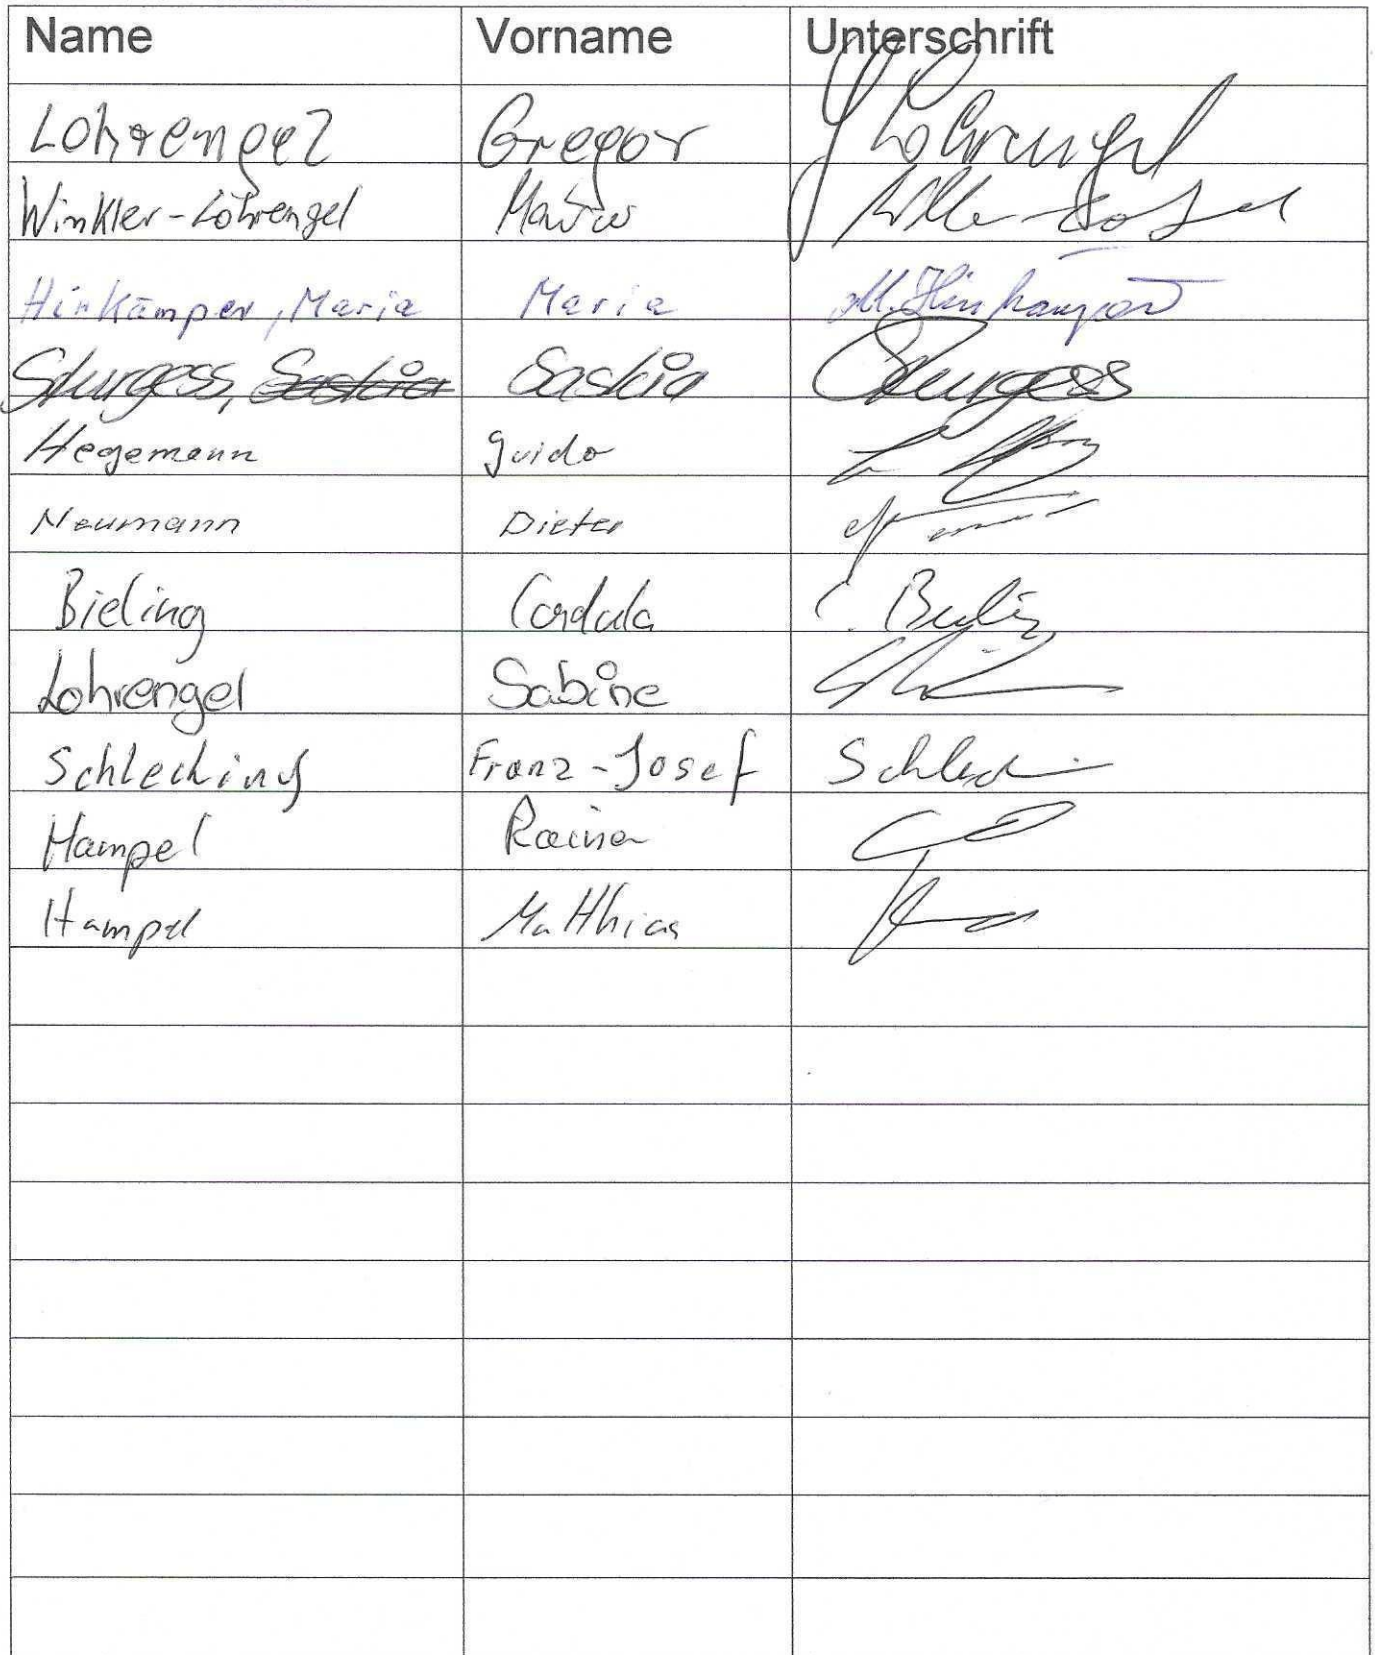 Name Vorname Unterschrift
Lohrengel Gregor G Lohrengel
Winkler-Löhrengel
Hinkämper, Maria Maria M. Hinkämper
Sturgess, Saskia Saskia Sturgess
Hegemann Guido
Neumann Dieter
Bieling Cordula C. Bieling
Lohrengel Sabine
Schleching Franz-Josef
Hampel Rainer
Hampel Matthias